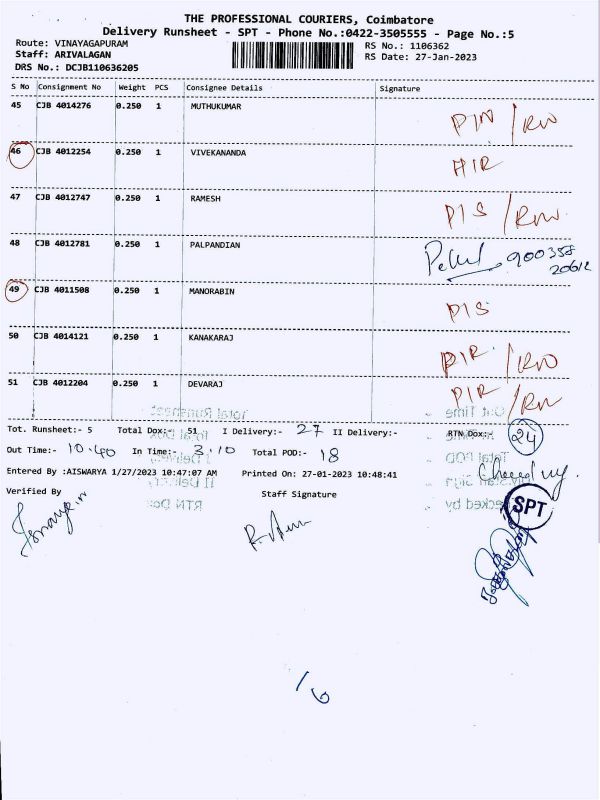 THE PROFESSIONAL COURIERS, Coimbatore
Delivery Runsheet - SPT - Phone No.:0422-3505555 - Page No.:5
Route: VINAYAGAPURAM
RS No.: 1106362
Staff: ARIVALAGAN
RS Date: 27-Jan-2023
DRS No.: DCJB110636205
S No Consignment No Weight PCS Consignee Details Signature
45 CJB 4014276 0.250 1 MUTHUKUMAR
46 CJB 4012254 0.250 1 VIVEKANANDA
47 CJB 4012747 0.250 1 RAMESH
48 CJB 4012781 0.250 1 PALPANDIAN 900358
20612
49 CJB 4011508 0.250 1 MANORABIN
50 CJB 4014121 0.250 1 KANAKARAJ
51 CJB 4012204 0.250 1 DEVARAJ
Tot. Runsheet:- 5 Total Dox:- 51 I Delivery:- 27 II Delivery:- RTN Dox:- 24
Out Time:- 10.40 In Time:- 3.10 Total POD:- 18
Entered By :AISWARYA 1/27/2023 10:47:07 AM Printed On: 27-01-2023 10:48:41
Verified By Staff Signature
SPT